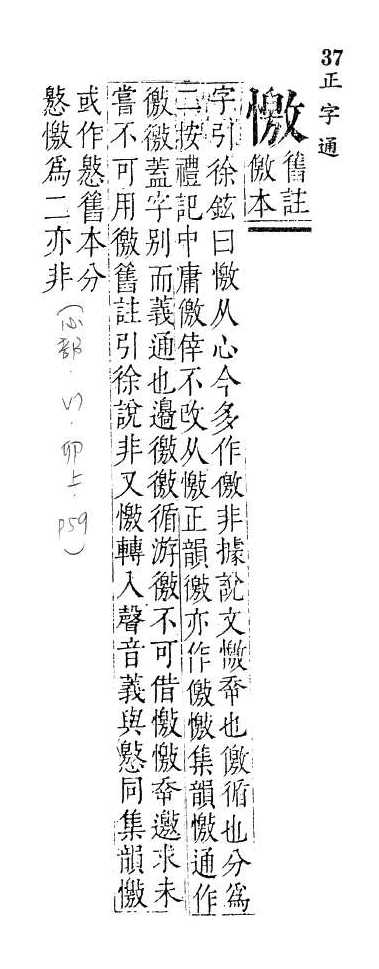 37正字通
憿
舊註
儌本
字引徐鉉曰憿从心今多作儌非據說文憿㚔也儌循也分爲
二按禮記中庸儌倖不改从憿正韻徼亦作儌憿集韻憿通作
徼徼蓋字別而義通也邉徼徼循游徼不可借憿憿㚔邀求未
嘗不可用徼舊註引徐說非又憿轉入聲音義與憿同集韻憿
或作憿舊本分
憿憿爲二亦非
(心部.卯上.P59)